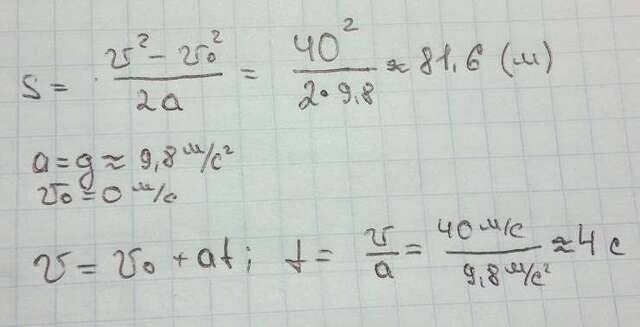 S = (v² − v₀²)/(2a) = 40²/(2·9,8) ≈ 81,6 (м)
a = g ≈ 9,8 м/с²
v₀ = 0 м/с
v = v₀ + at; t = v/a = (40 м/с)/(9,8 м/с²) ≈ 4 с